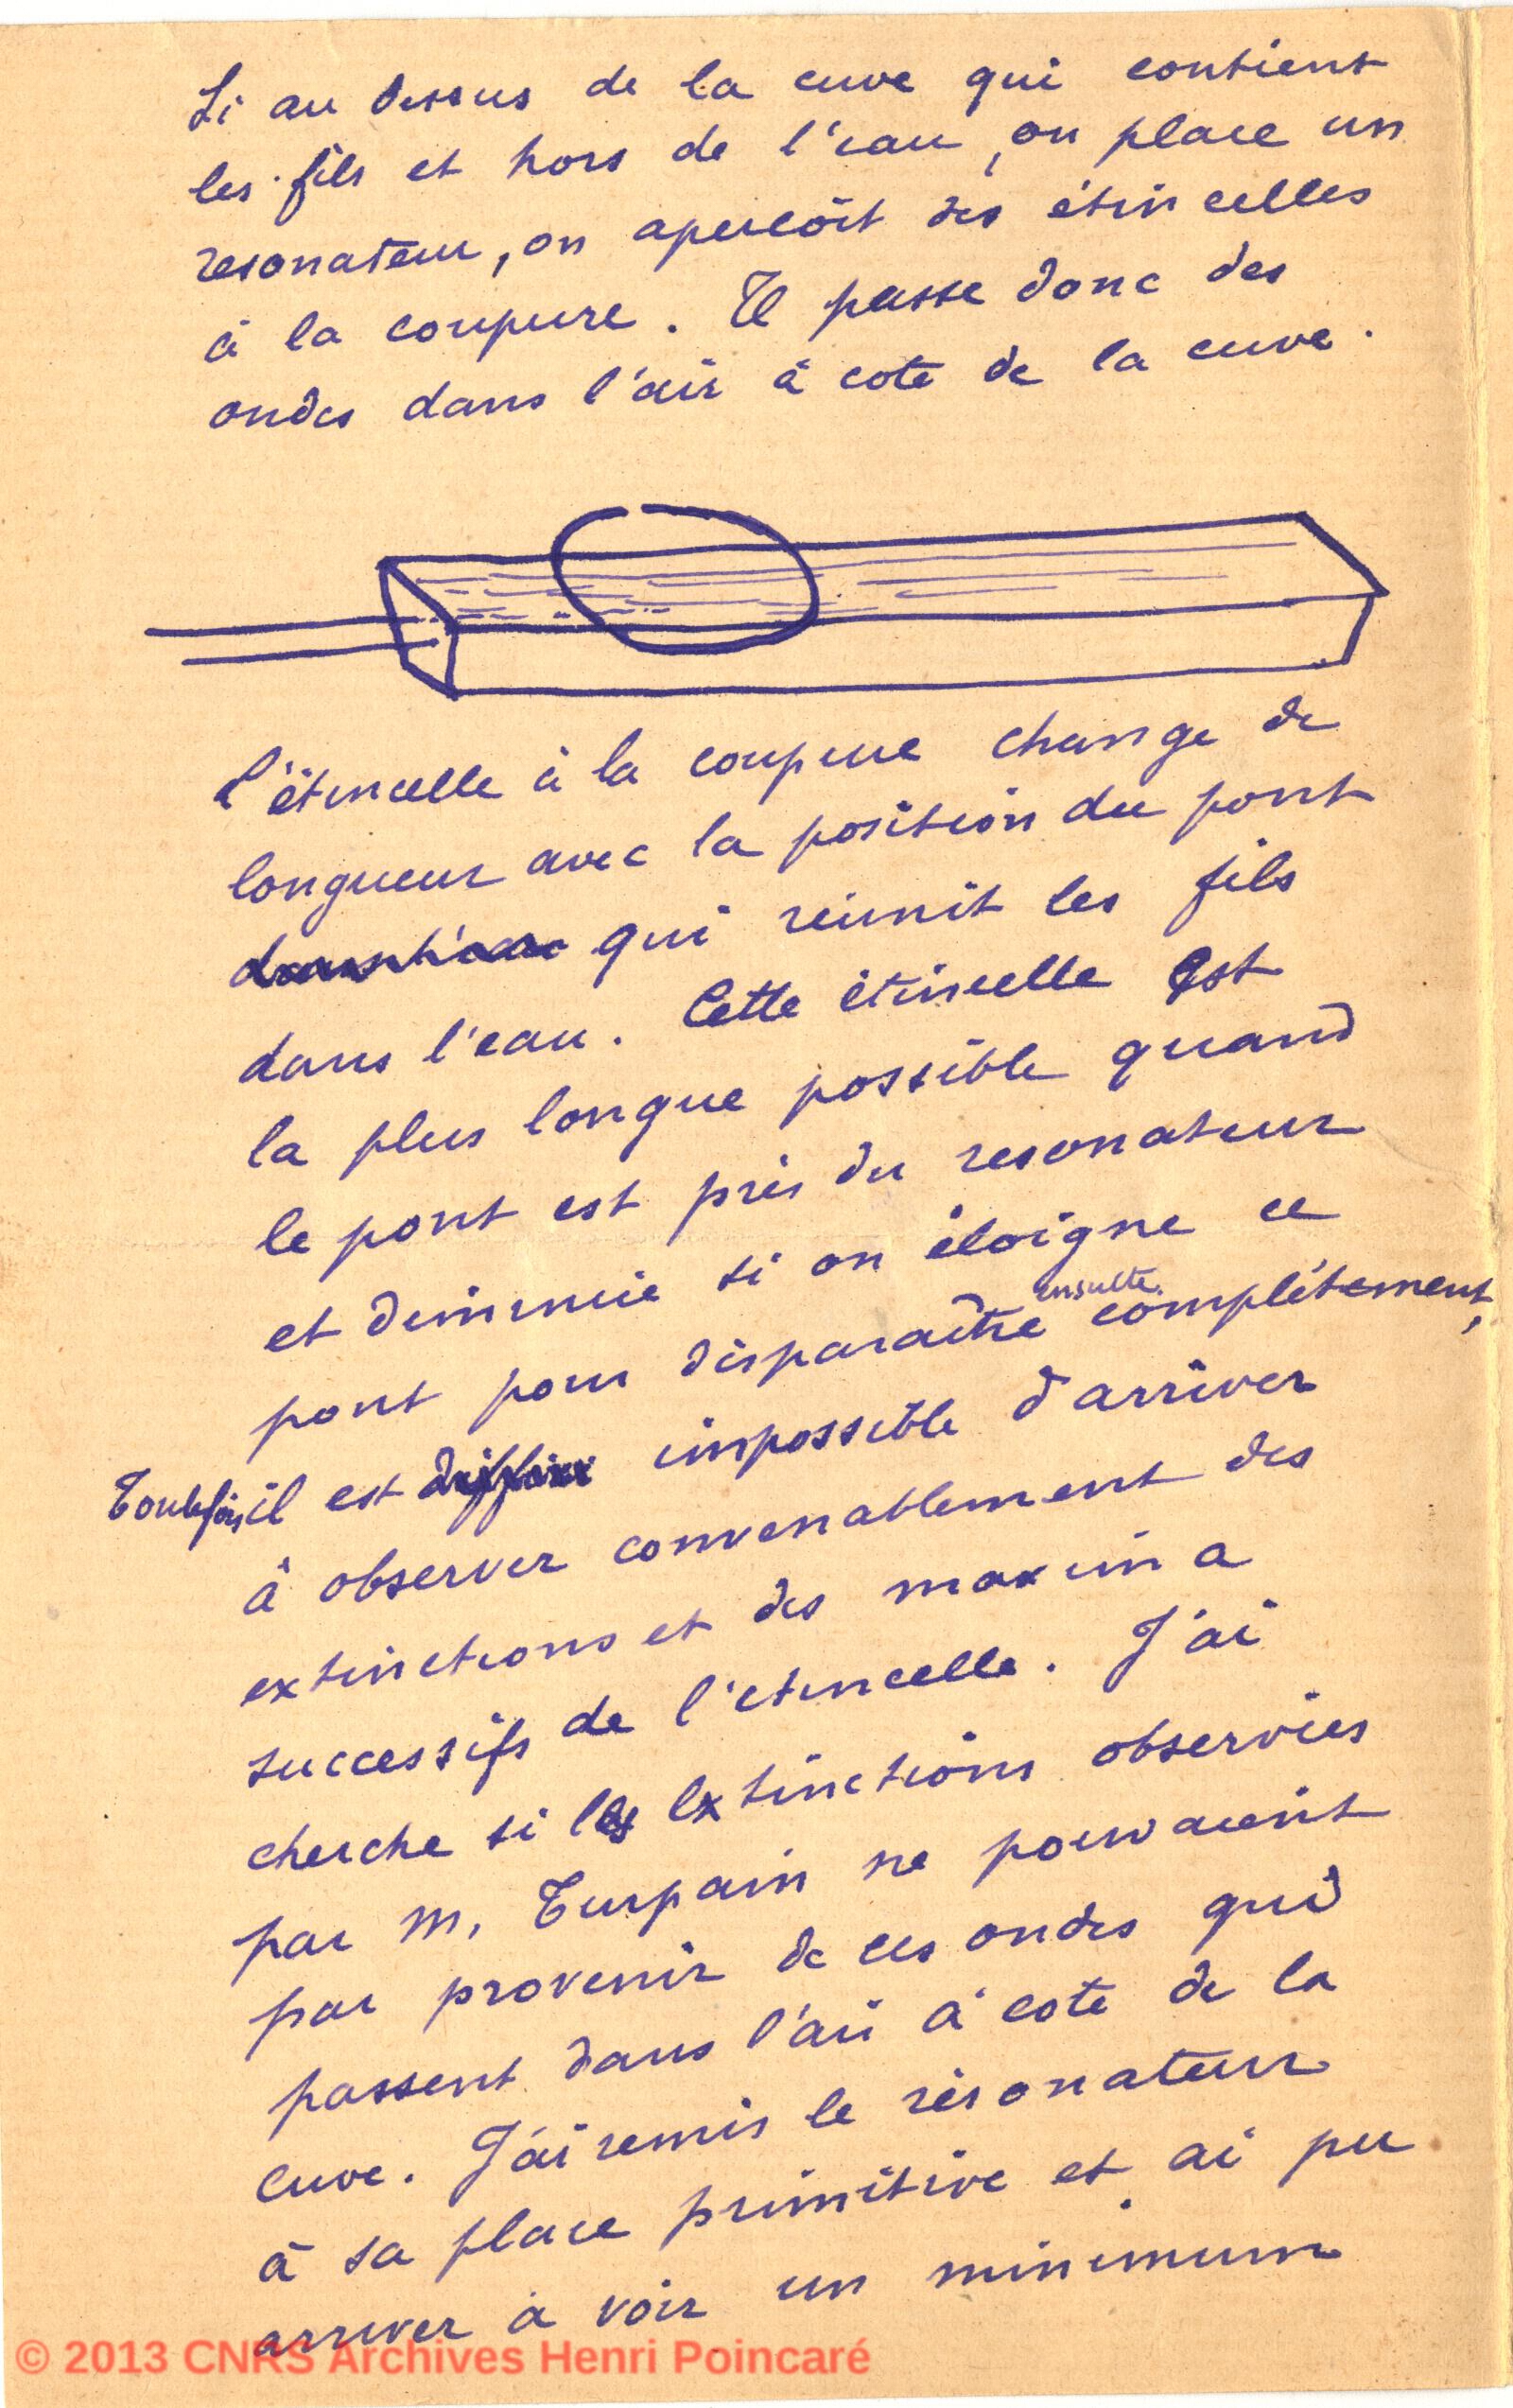 Si au dessus de la cuve qui contient
les fils et hors de l'eau, on place un
resonateur, on apercoit des étincelles
à la coupure. Il passe donc des
ondes dans l'air à coté de la cuve.
L'étincelle à la coupure change de
longueur avec la position du pont
qui réunit les fils
dans l'eau. Cette étincelle est
la plus longue possible quand
le pont est près du resonateur
et diminue si on éloigne ce
pont pour disparaître ensuite complétement,
Toutefois il est impossible d'arriver
à observer convenablement des
extinctions et des maxima
successifs de l'etincelle. J'ai
cherche si les extinctions observées
par M. Turpain ne pouvaient
pas provenir de ces ondes qui
passent dans l'air à coté de la
cuve. J'ai remis le résonateur
à sa place primitive et ai pu
arriver à voir un minimum
© 2013 CNRS Archives Henri Poincaré